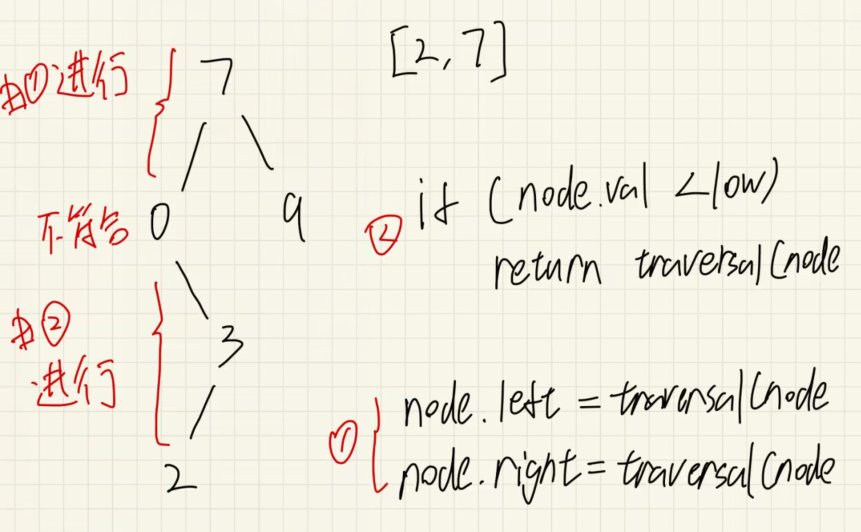 [2,7]
由①进行
7
不符合
0
9
② if (node.val < low)
return traversal(node
由②
进行
3
2
① node.left = traversal(node
node.right = traversal(node